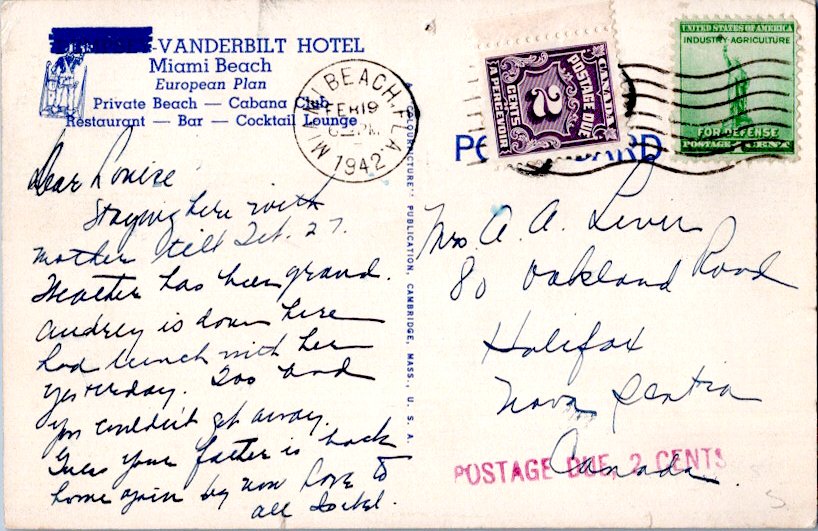 -VANDERBILT HOTEL
Miami Beach
European Plan
Private Beach — Cabana Club
Restaurant — Bar — Cocktail Lounge
MIAMI BEACH, FLA.
FEB 19
PM
1942
CANADA
POSTAGE DUE
2
CENTS
A PERCEVOIR
UNITED STATES OF AMERICA
INDUSTRY AGRICULTURE
FOR DEFENSE
POSTAGE 1 CENT
Dear Louise
Staying here with
mother till Feb. 27.
Weather has been grand.
Audrey is down here
had lunch with her
yesterday. Too bad
you couldn't get away.
Guess your father is back
home again by now Love to
all
"COLOURPICTURE" PUBLICATION, CAMBRIDGE, MASS., U. S. A.
Mrs. A. A. Lever
80 Oakland Road
Halifax
Nova Scotia
Canada.
POSTAGE DUE, 2 CENTS